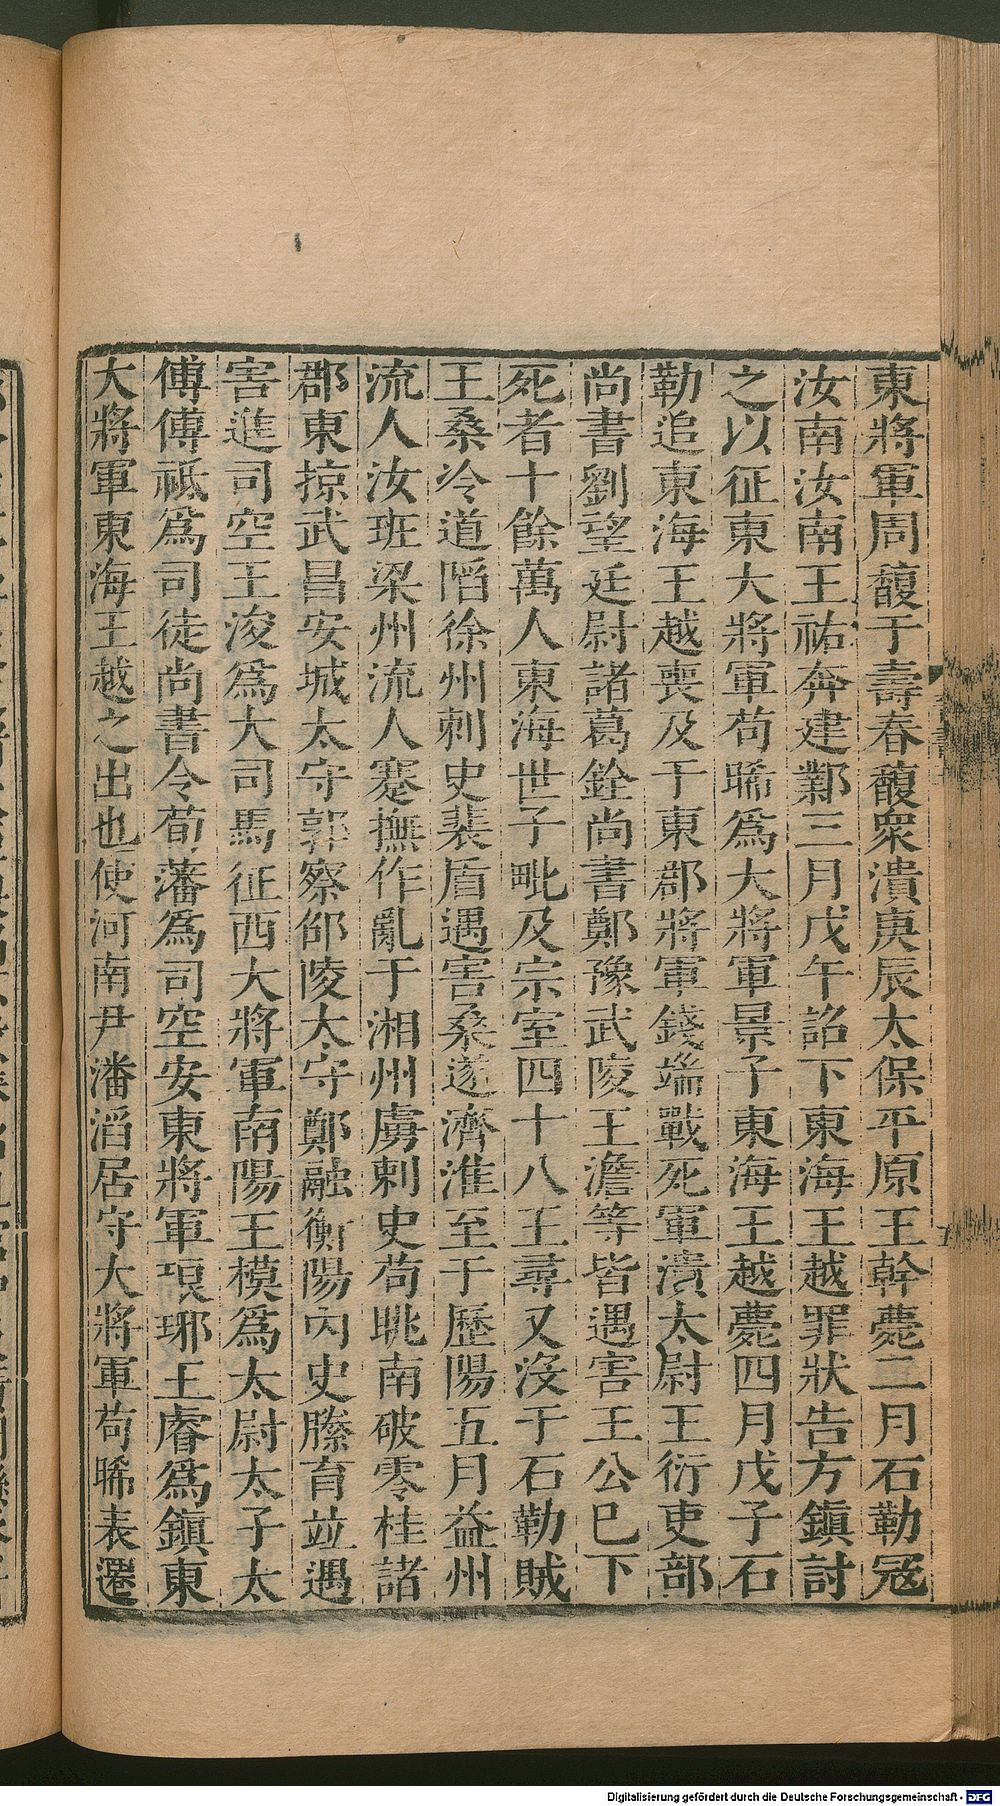 東將軍周馥于壽春馥衆潰庚辰太保平原王幹薨二月石勒冦
汝南汝南王祐奔建鄴三月戊午詔下東海王越罪狀告方鎮討
之以征東大將軍苟晞爲大將軍景子東海王越薨四月戊子石
勒追東海王越喪及于東郡將軍錢端戰死軍潰太尉王衍吏部
尚書劉望廷尉諸葛銓尚書鄭豫武陵王澹等皆遇害王公巳下
死者十餘萬人東海世子毗及宗室四十八王尋又沒于石勒賊
王桑冷道陷徐州刺史裴盾遇害桑遂濟淮至于歷陽五月益州
流人汝班梁州流人蹇撫作亂于湘州虜刺史苟眺南破零桂諸
郡東掠武昌安城太守郭察邵陵太守鄭融衡陽内史滕育竝遇
害進司空王浚爲大司馬征西大將軍南陽王模爲太尉太子太
傅傅祗爲司徒尚書令荀藩爲司空安東將軍琅邪王睿爲鎮東
大將軍東海王越之出也使河南尹潘滔居守大將軍苟晞表遷
Digitalisierung gefördert durch die Deutsche Forschungsgemeinschaft - DFG